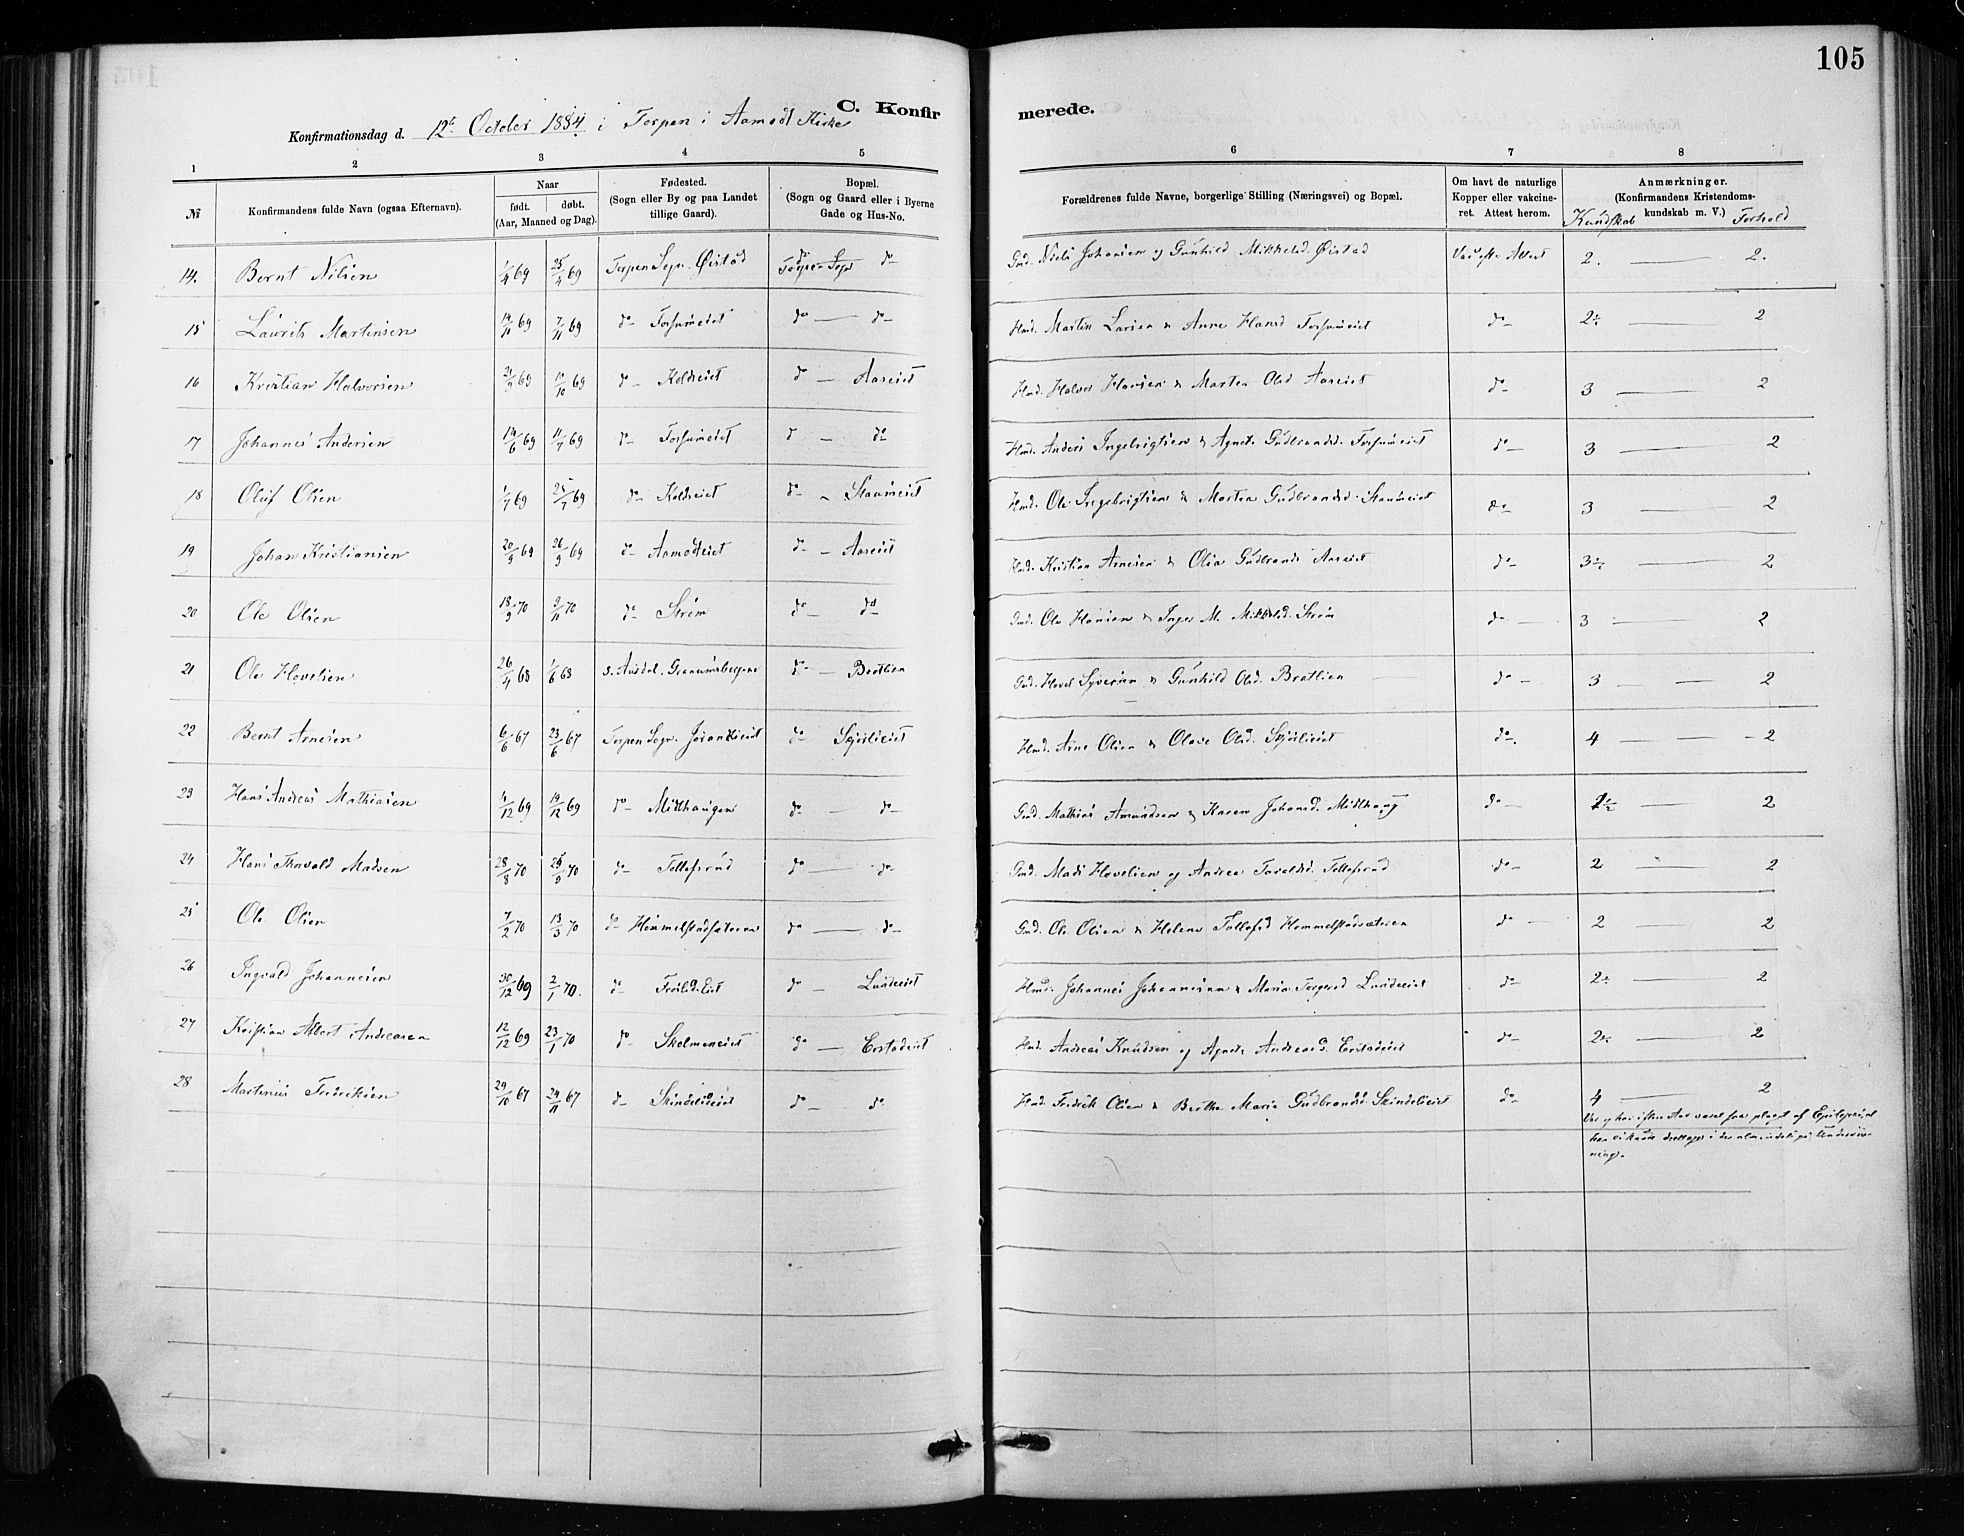 105
C. Konfir merede.
Konfirmationsdag d. 12te October 1884 i Torpen i Aamodt Kirke
1 2 3 4 5 6 7 8
№ Konfirmandens fulde Navn (ogsaa Efternavn). Naar født. døbt. (Aar, Maaned og Dag). Fødested. (Sogn eller By og paa Landet tillige Gaard). Bopæl. (Sogn og Gaard eller i Byerne Gade og Hus-No. Forældrenes fulde Navne, borgerlige Stilling (Næringsvei) og Bopæl. Om havt de naturlige Kopper eller vakcineret. Attest herom. Anmærkninger. (Konfirmandens Kristendomskundskab m. V.) Kundskab Forhold
14. Bernt Nilsen 1/4 69 25/4 69 Torpen Sogn Øistad do Torpen Sogn do Gmd. Niels Johansen og Gunhild Mikkelsd. Øistad 2. 2.
15 Laurits Martinsen 69 7/11 69 do Forsumeiet do do Hmd. Martin Larsen & Anne Hansd Forsumeiet do 2 2
16 Kristian Halvorsen 69 10/10 69 do Koldseiet do Aaseiet Hmd. Halvor Hansen & Marten Olsd Aaseiet do 3 2
17 Johannes Andersen 69 11/7 69 do Forsumeiet do do Hmd. Anders Ingebrigtsen & Agnete Gudbrandsd. Forsumeiet do 3 2
18 Oluf Olsen 1/7 69 25/7 69 do Koldseiet do Staumeiet Hmd. Ole Ingebrigtsen & Marten Gudbrandsd. Staumeiet do 3 2
19 Johan Kristiansen 20/9 69 26/9 69 do Aamodteiet do Aaseiet Hmd. Kristian Arnesen & Olia Gudbrands Aaseiet do 3 2
20 Ole Olsen 18/9 70 70 do Strøm do do Gmd. Ole Hansen & Inger M. Mikkelsd. Strøm do 3 2
21 Ole Hovelsen 26/4 68 1/6 68 S. Ausdal. do Bratlien Gmd. Hovel Syversen & Gunhild Olsd. Bratlien do 3 2
22 Bernt Arnesen 6/6 67 23/6 67 Torpen Sogn do Hmd. Arne Olsen & Olave Olsd. do 4 2
23 Hans Andreas Mathiasen 4/12 69 19/12 69 do Midthaugen do do Gmd. Mathias Amundsen & Karen Johansd. Midthaug do 2
24 Hans Thorvald Madsen 28/8 70 25/9 70 do Tollefsrud do do Gmd. Mads Hovelsen og Andrea Tollefsrud do 2 2
25 Ole Olsen 7/2 70 13/3 70 do Hommelstadsæteren do do Gmd. Ole Olsen & Helene Tollefsd Hommelstadsæteren do 2 2
26 Ingvald Johannesen 30/12 69 2/1 70. do do Lundeeiet Hmd. Johannes Johannesen & Maria Torgersd Lundeeiet do 2 2
27 Kristian Albert Andreasen 12/12 69 23/1 70 do Skolmeneiet do Erstadeiet Hmd. Andreas Knudsen og Agnete Andreasd. Erstadeiet do 2 2
28 Martinius Fredriksen 29/10 67 24/11 67 do Skindelieiet do do Hmd. Fredrik Olsen & Berthe Marie Gudbrandsd. Skindelieiet do 4 2
Aar været plaget af Epilepsi, i den almindelige Undervis-
ning.